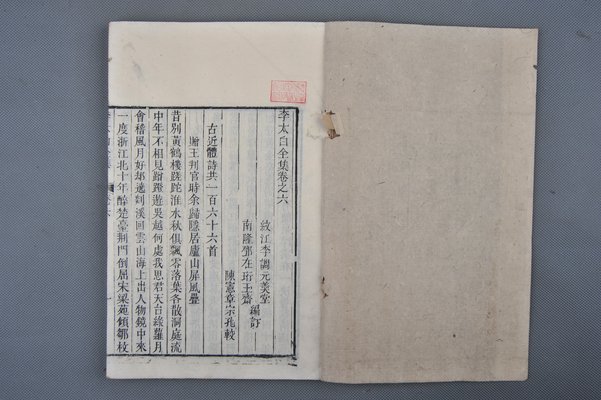 李太白全集卷之六
江李調元羹堂
南隆鄧在珩玉齋
編訂
陳憲章宗孔較
古近體詩共一百六十六首
贈王判官時余歸隱居廬山屏風疊
昔別黃鶴樓蹉跎淮水秋俱飄零落葉各散洞庭流
中年不相見蹭蹬遊吳越何處我思君天台綠蘿月
會稽風月好却遶剡溪回雲山海上出人物鏡中來
一度浙江北十年醉楚臺荆門倒屈宋梁苑傾鄒枚